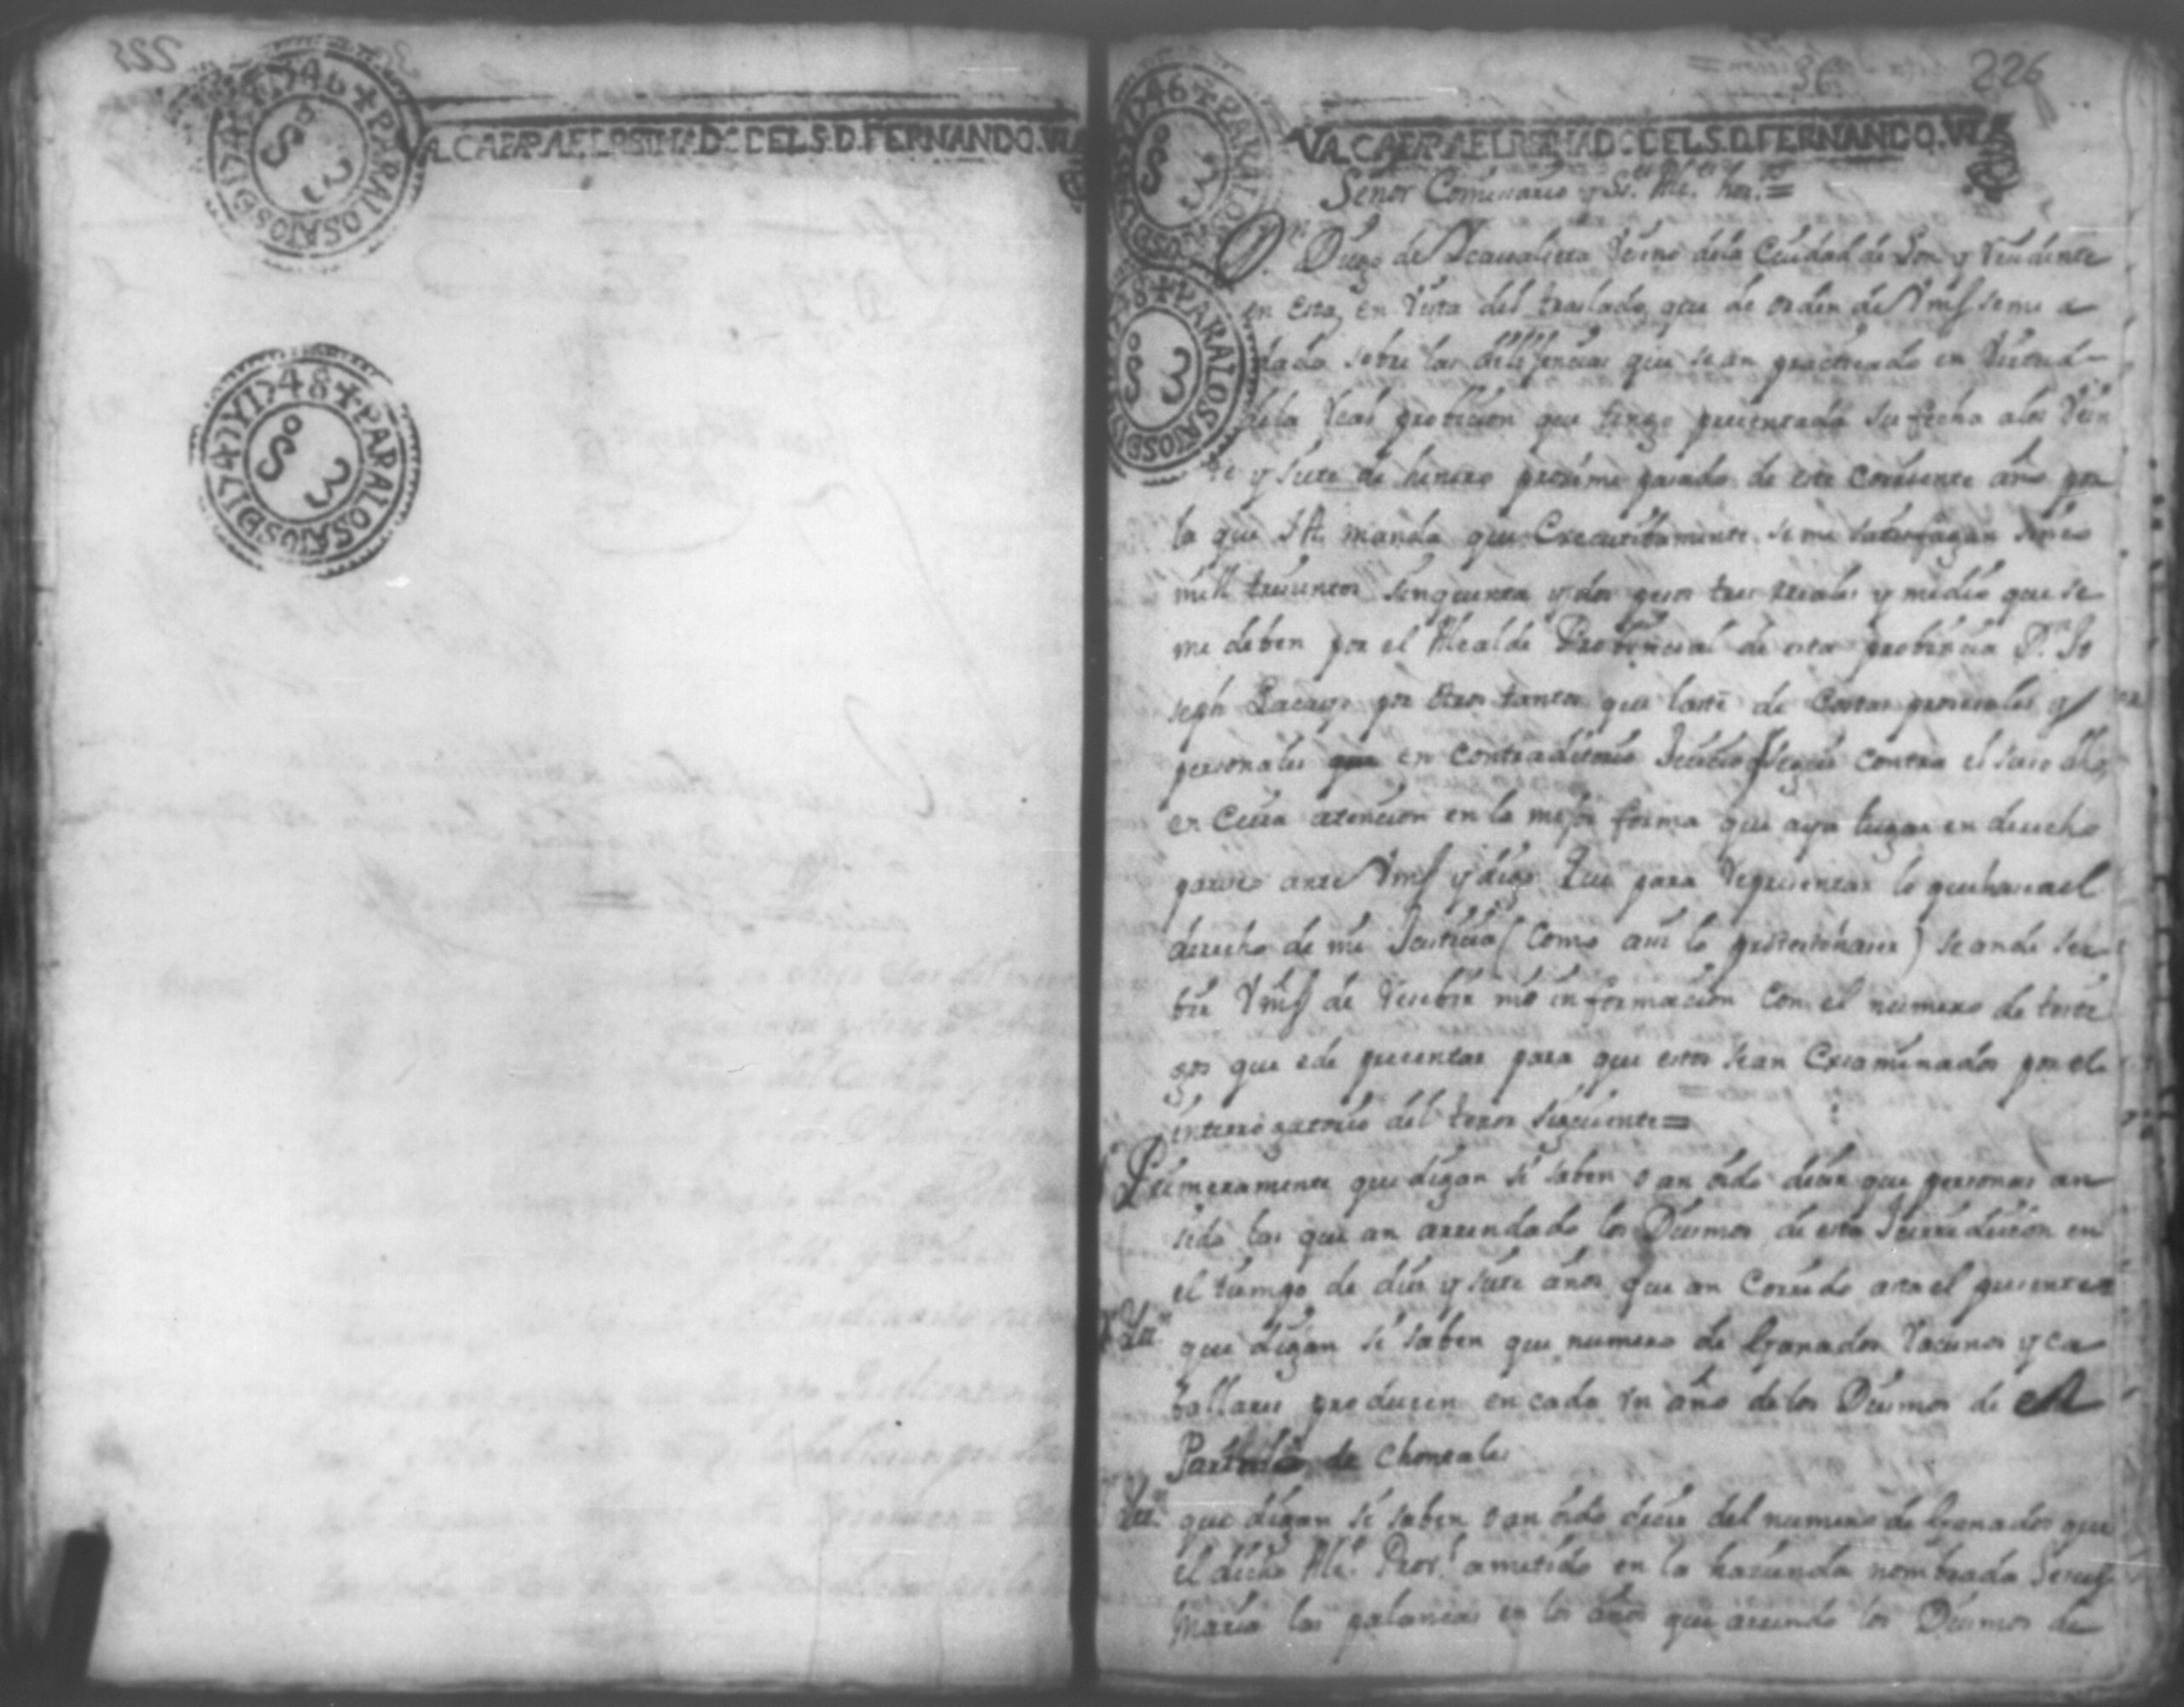 225
VALGA PARA EL REINADO DEL S. D. FERNANDO. VI
1746 + PARA LOS AÑOS DE 1745 Y
S. 3
1748 + PARA LOS AÑOS DE 1747 Y
S. 3
226
36
VALGA PARA EL REINADO DEL S. D. FERNANDO. VI
1746 + PARA LOS
S. 3
1748 + PARA LOS AÑOS
S. 3
Señor Comissario y Sr. Alc.
Dn. Diego de Ascaralieta Vecino dela Ciudad de Leon y Residente
en esta, en Vista del traslado que de orden de Vms seme a
dado sobre las delijencias que sean practicado en Virtud
dela Real probicion que tengo precentada su fecha alos Vein
te y siete de henero proximo pasado de este Corriente año por
la que S.A. manda que Executibamente se me satisfagan sinco
mill trecientos sinquenta y dos pesos tres reales y medio que se
me deben por el Alcalde Probincial de esta probincia Dn. Jo
seph Lacayo por otros tantos que lasté de Costas prosesales y
personales en contraditorio Juicio Segui contra el suso dho,
en Cuia atencion en la mejor forma que aya lugar en derecho
paresco ante Vms y digo Que para Representar lo que hase ael
derecho de mi Justicia (como assi lo protesto haser) se ande ser
bir Vms de Recebir me informacion Con el numero de testi
gos que e de precentar para que estos sean Examinados por el
interrogatorio del tenor siguiente=
Primeramente que digan si saben o an oido desir que personas an
sido las que an arrendado los Diesmos de esta Jurisdicion en
el tiempo de dies y siete años que an Corrido asta el presente
Itt. que digan si saben que numero de Ganados Vacunos y ca
ballares producen en cada un año de los Diesmos de el
Partido de Chontales
Itt. que digan si saben o an oido desir del numero de Ganados que
el dicho Alc. Prov.l a metido en la hasienda nombrada Jesus
Maria las palancas en los años que arrendo los Diesmos de